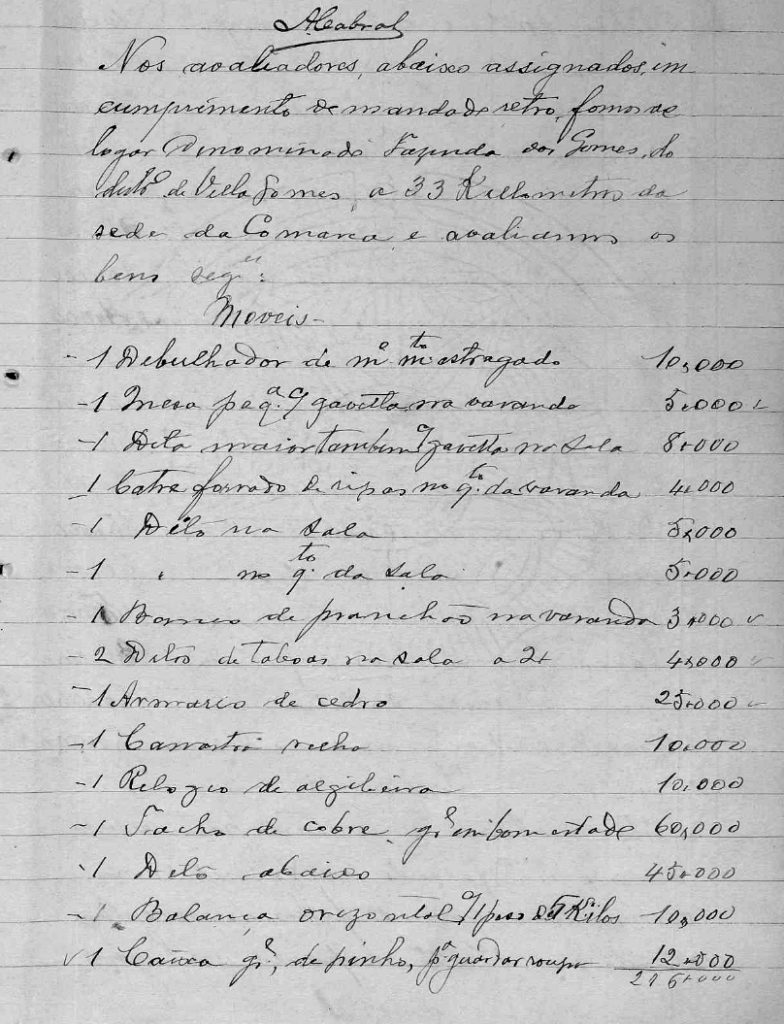 ACabral
Nos avaliadores, abaixo assignados, im
cumprimento de mandado retro, fomos ao
logar Denominado Fazenda dos Gomes, do
distº de Villa Gomes, a 33 Killometros da
sede da Comarca e avaliamos os
bens seg.es:
Moveis-
- 1 Debulhador de mº mto estragado 10,000
- 1 Meza peqª c/ gavetta na varanda 5,000
- 1 Dita maior tambem c/ gavetta na sala 8,000
- 1 Catre forrado de ripas no q.to da varanda 4,000
- 1 Dito na sala 5,000
- 1 " no q.to da sala 5,000
- 1 Banco de pranchão na varanda 3,000
- 2 Ditos de taboas na sala a 2, 4,000
- 1 Armario de cedro 25,000
- 1 Canastra velha 10,000
- 1 Relogio de algibeira 10,000
- 1 Tacho de cobre, gr.e em bom estado 60,000
- 1 Dito abaixo 45,000
- 1 Balança orizontal c/ 1 peso de 5 Kilos 10,000
1 Caixa gr.e, de pinho, pª guardar roupa 12,000
216,000